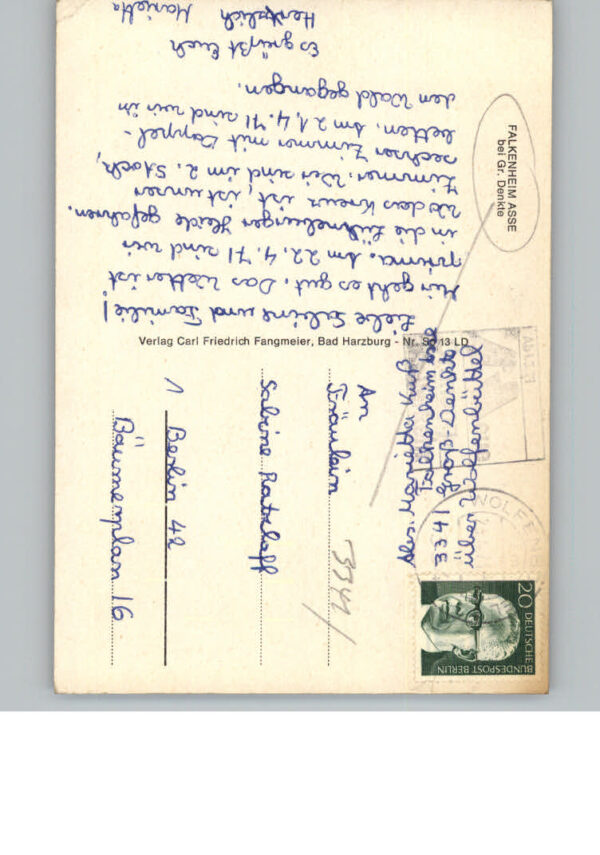 FALKENHEIM ASSE
bei Gr. Denkte
Liebe Sabine und Familie!
Mir geht es gut. Das Wetter ist
prima. Am 22.4.71 sind wir
in die Lüneburger Heide gefahren.
Wo das Kreuz ist, ist unser
Zimmer. Wir sind im 2. Stock,
sechser Zimmer mit Doppel-
betten. Am 21.4.71 sind wir in
den Wald gegangen.
Es grüßt Euch
Herzlich Marietta
Verlag Carl Friedrich Fangmeier, Bad Harzburg - Nr. 13 LD
Abs. Marietta
Falkenheim Asse
3341 Groß-Denkte
über Wolfenbüttel
WOLFEN
20 DEUTSCHE
BUNDESPOST BERLIN
An
Fräulein
Sabine
1 Berlin 42
Bäumerplan 16